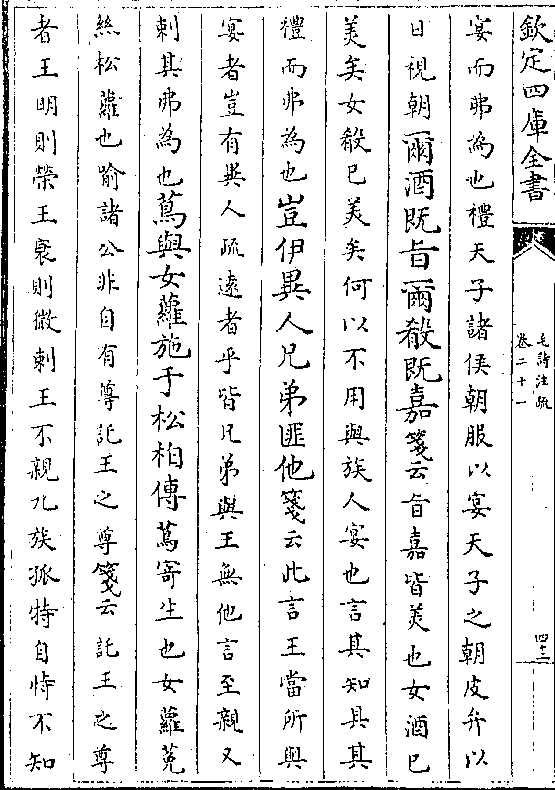 欽定四庫全書
毛詩注疏
卷二十一
四十三
宴而弗為也禮天子諸侯朝服以宴天子之朝皮弁以
日視朝爾酒既旨爾殽既嘉箋云旨嘉皆美也女酒已
美矣女殽已美矣何以不用與族人宴也言其知具其
禮而弗為也豈伊異人兄弟匪他箋云此言王當所與
宴者豈有異人疏遠者乎皆兄弟與王無他言至親又
刺其弗為也蔦與女蘿施于松柏傳蔦寄生也女蘿菟
絲松蘿也喻諸公非自有尊託王之尊箋云託王之尊
者王明則榮王衰則微刺王不親九族孤特自恃不知